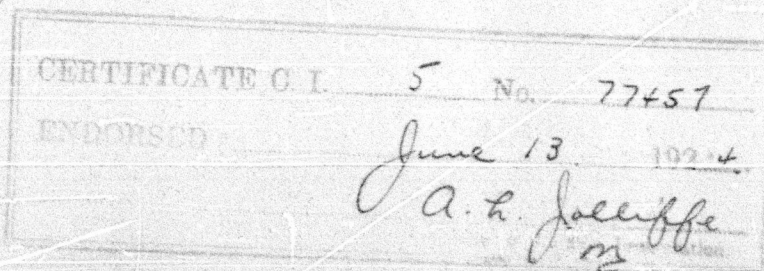 CERTIFICATE C. I. 5 No. 77457
ENDORSED
June 13. 1924.
A. L. Jolliffe